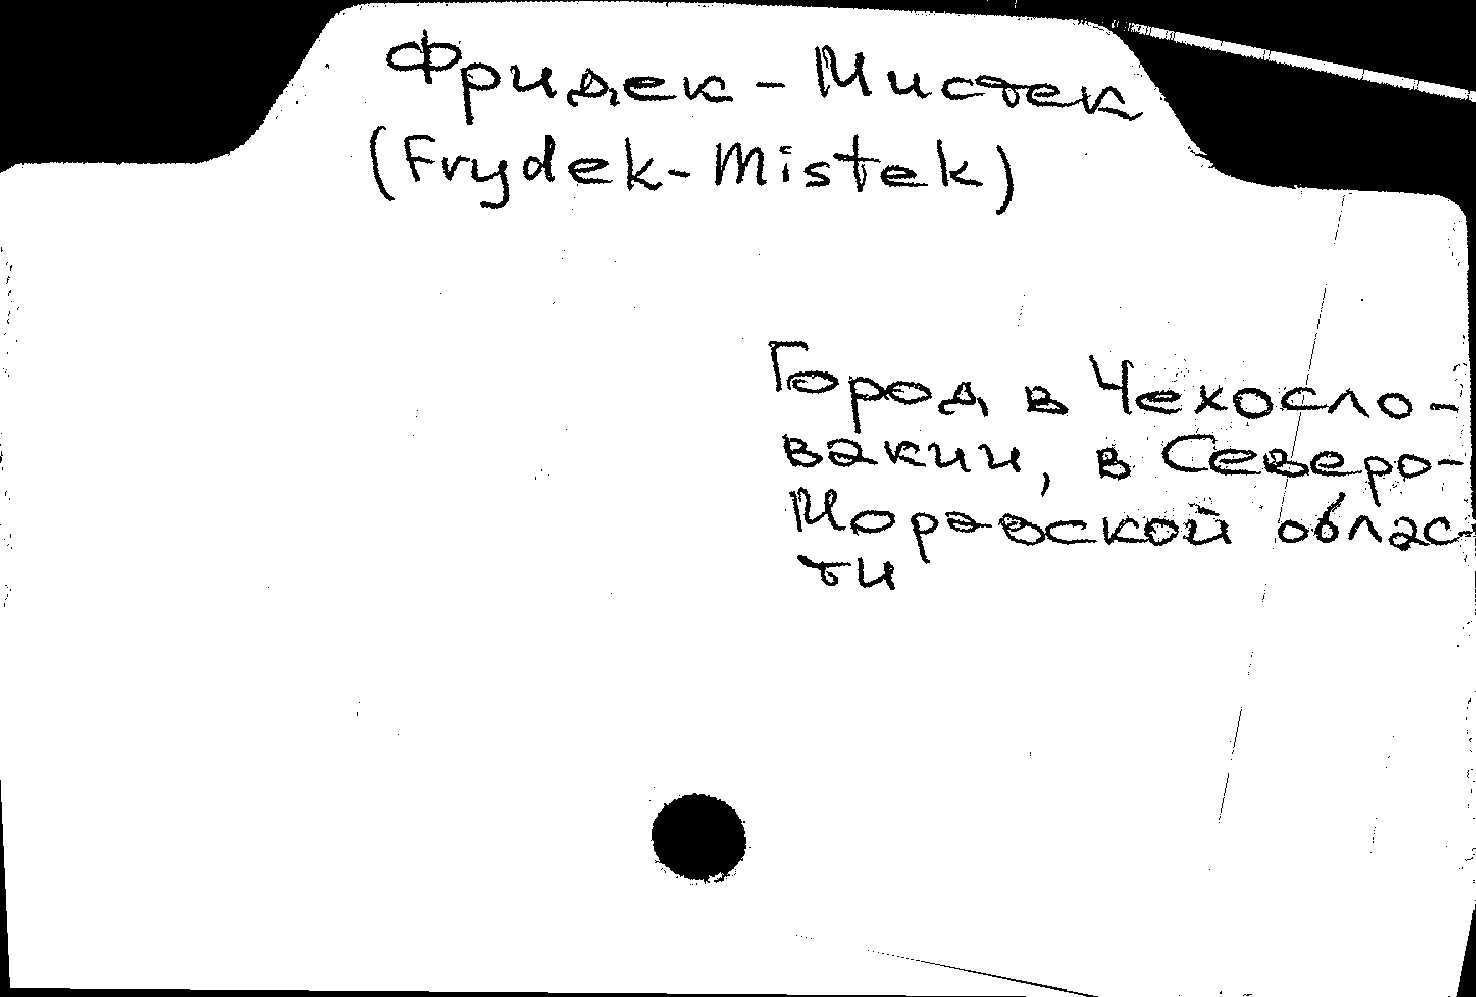 Фридек - Мистек
(Frydek-Mistek)
Город в Чехосло-
вакии, в Северо-
Моравской облас-
ти